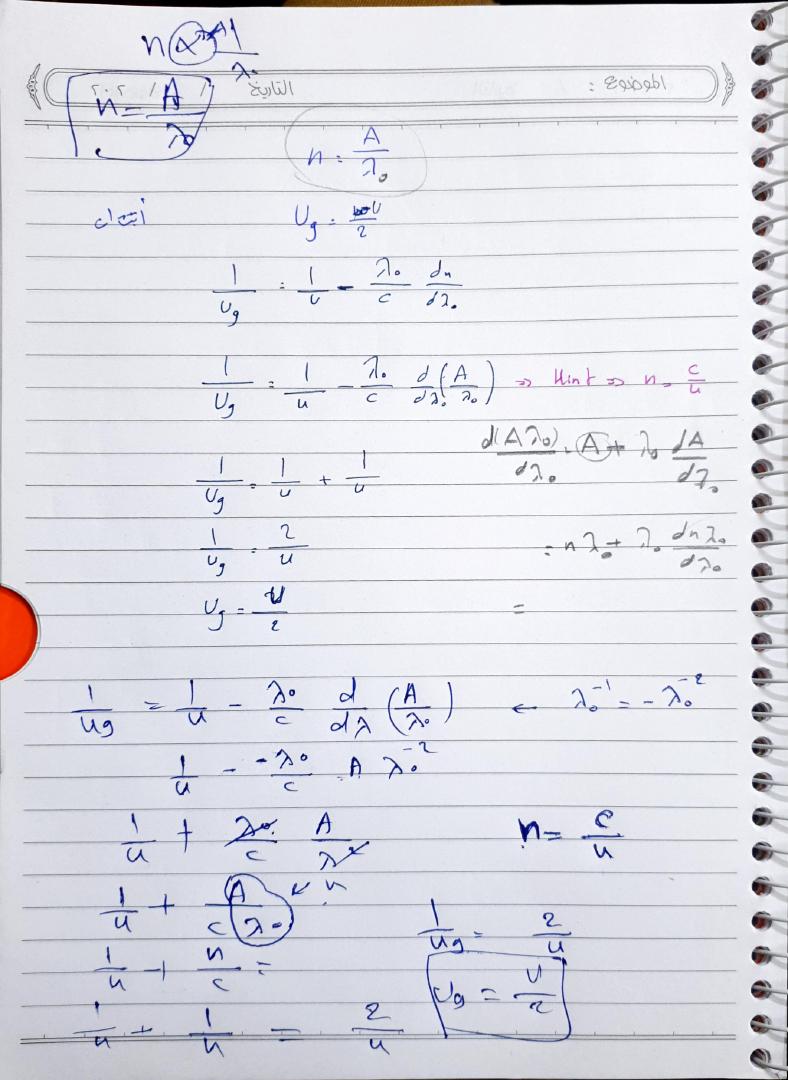 n α 1/λ₀
الموضوع : التاريخ / / ٢٠٢
n = A/λ₀
n = A/λ₀
أثبت ان U_g = U/2
1/U_g = 1/u - λ₀/c dn/dλ₀
1/U_g = 1/u - λ₀/c d/dλ₀ (A/λ₀) ⇒ Hint ⇒ n = c/u
d(Aλ₀)/dλ₀ = A + λ₀ dA/dλ₀
1/U_g = 1/u + 1/u
1/U_g = 2/u = nλ₀ + λ₀ dnλ₀/dλ₀
U_g = U/2 =
1/U_g = 1/u - λ₀/c d/dλ (A/λ₀) ← λ₀⁻¹ = -λ₀⁻²
1/u - -λ₀/c . A λ₀⁻²
1/u + λ₀/c A/λ² n = c/u
1/u + A/cλ₀ ↙ n
1/U_g = 2/u
1/u + n/c = U_g = U/2
1/u + 1/u = 2/u